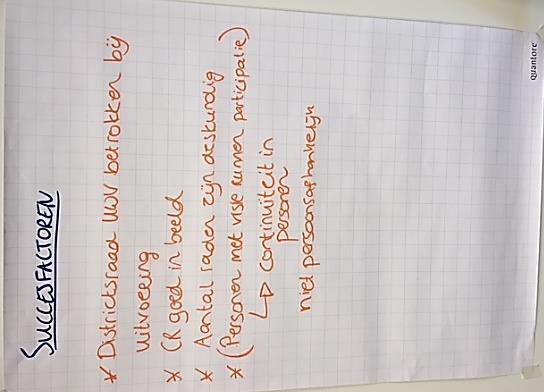 SUCCESFACTOREN
* Districtsraad UWV betrokken bij
uitvoering
* CR goed in beeld
* Aantal raden zijn deskundig
* (Personen met visie runnen participatie)
↳ continuïteit in
personen
niet persoonsafhankelijk
quantore